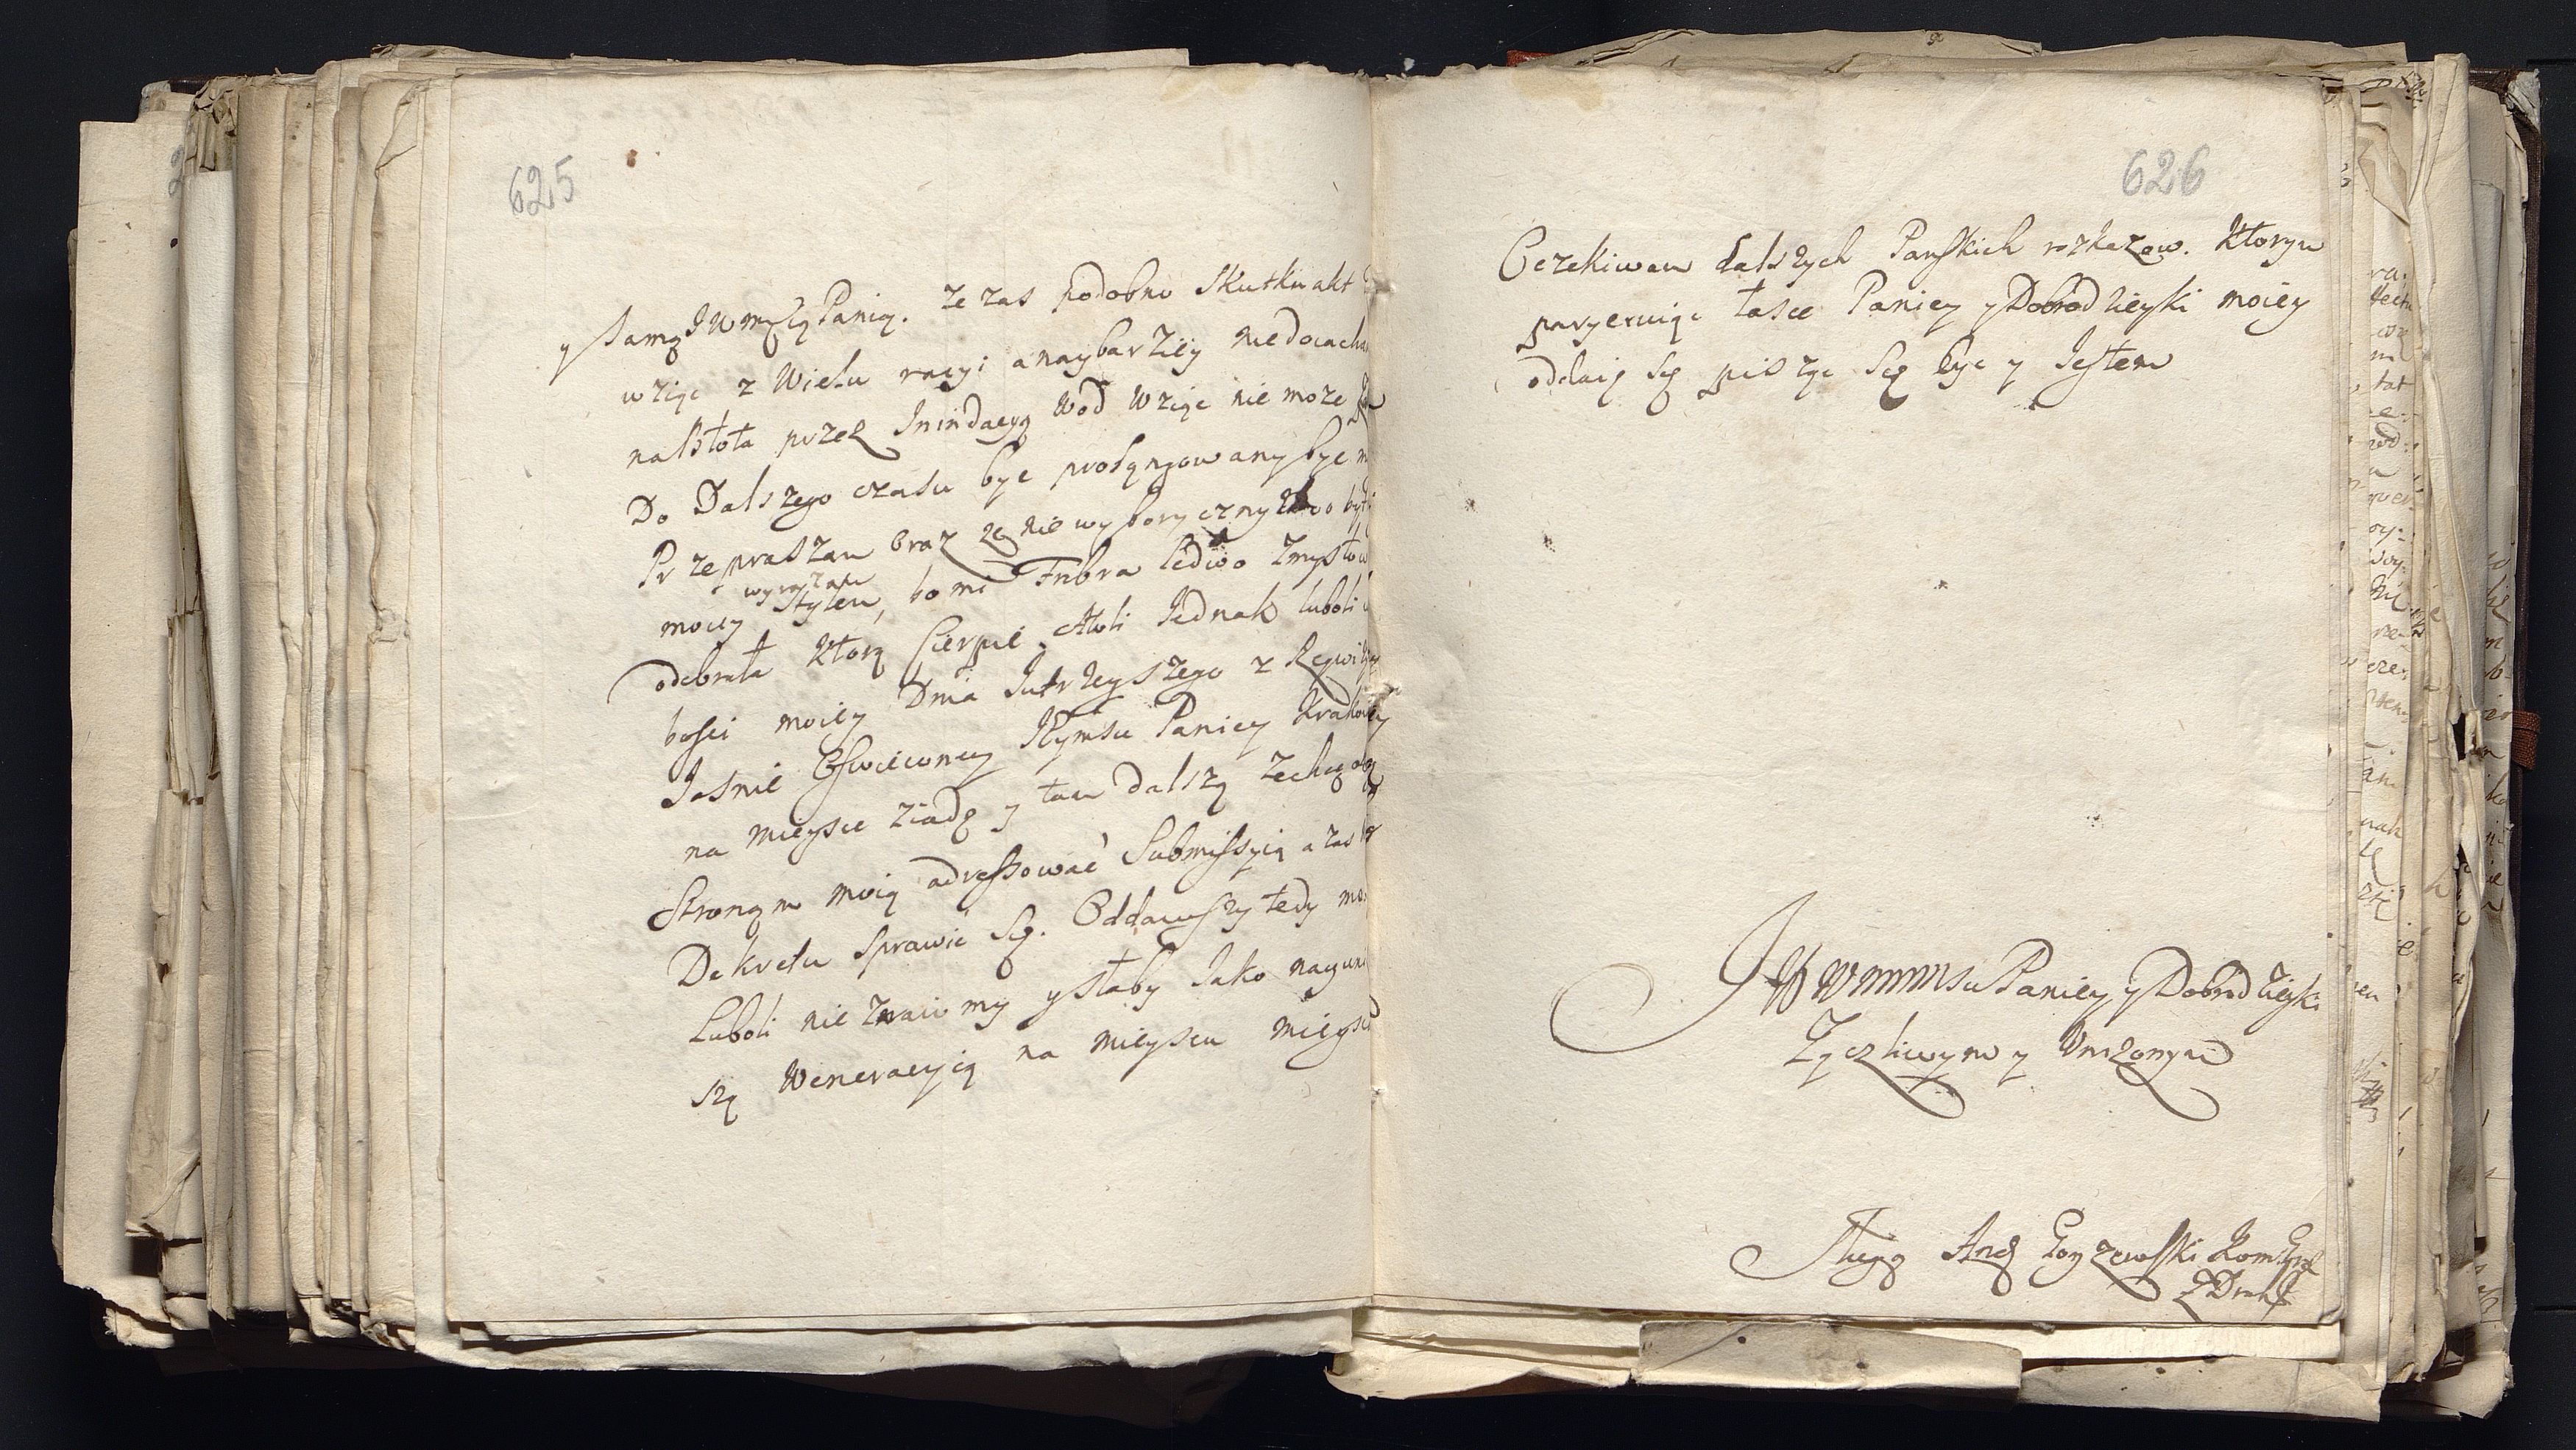 625
y samą JWmscą Panią. Ze zas podobno skutku akt
wziąc z Wielu racyi a naybarziey niedocach
na błota przez Inindacyą wod wziąc nie może
Do Dalszego czasu byc prolągowany byc
Przepraszam oraz że nie wyboryczny
wyrażam
moiey stylem, bo mi Febra ledwo zmysłow
odebrała ktorą Cierpię. Atoli Jednak luboli
bosci moiey Dnia Jutrzeyszego z Rewizy
Jasnie Oswieconey Xięmsci Paniey Krakowey
na mieysce ziadę y tam dalszą zechcę
Stronom moią adressować Submissyią a zas
Dekretu sprawić się. Oddawszy tedy
Luboli nieznaiomy y słaby Jako nayuni
szą Weneracyią na mieyscu mieysc
626
Oczekiwam dalszych Panskich rozkazow. Ktorym
paryeruiąc łasce Paniey y Dobrodzieyki moiey
oddaię się pisząc się byc y Jestem
JW WMMMsci Paniey y Dobrodzieyki
Zyczliwym y Unizonym
Sługą And Gorzewski Kom: